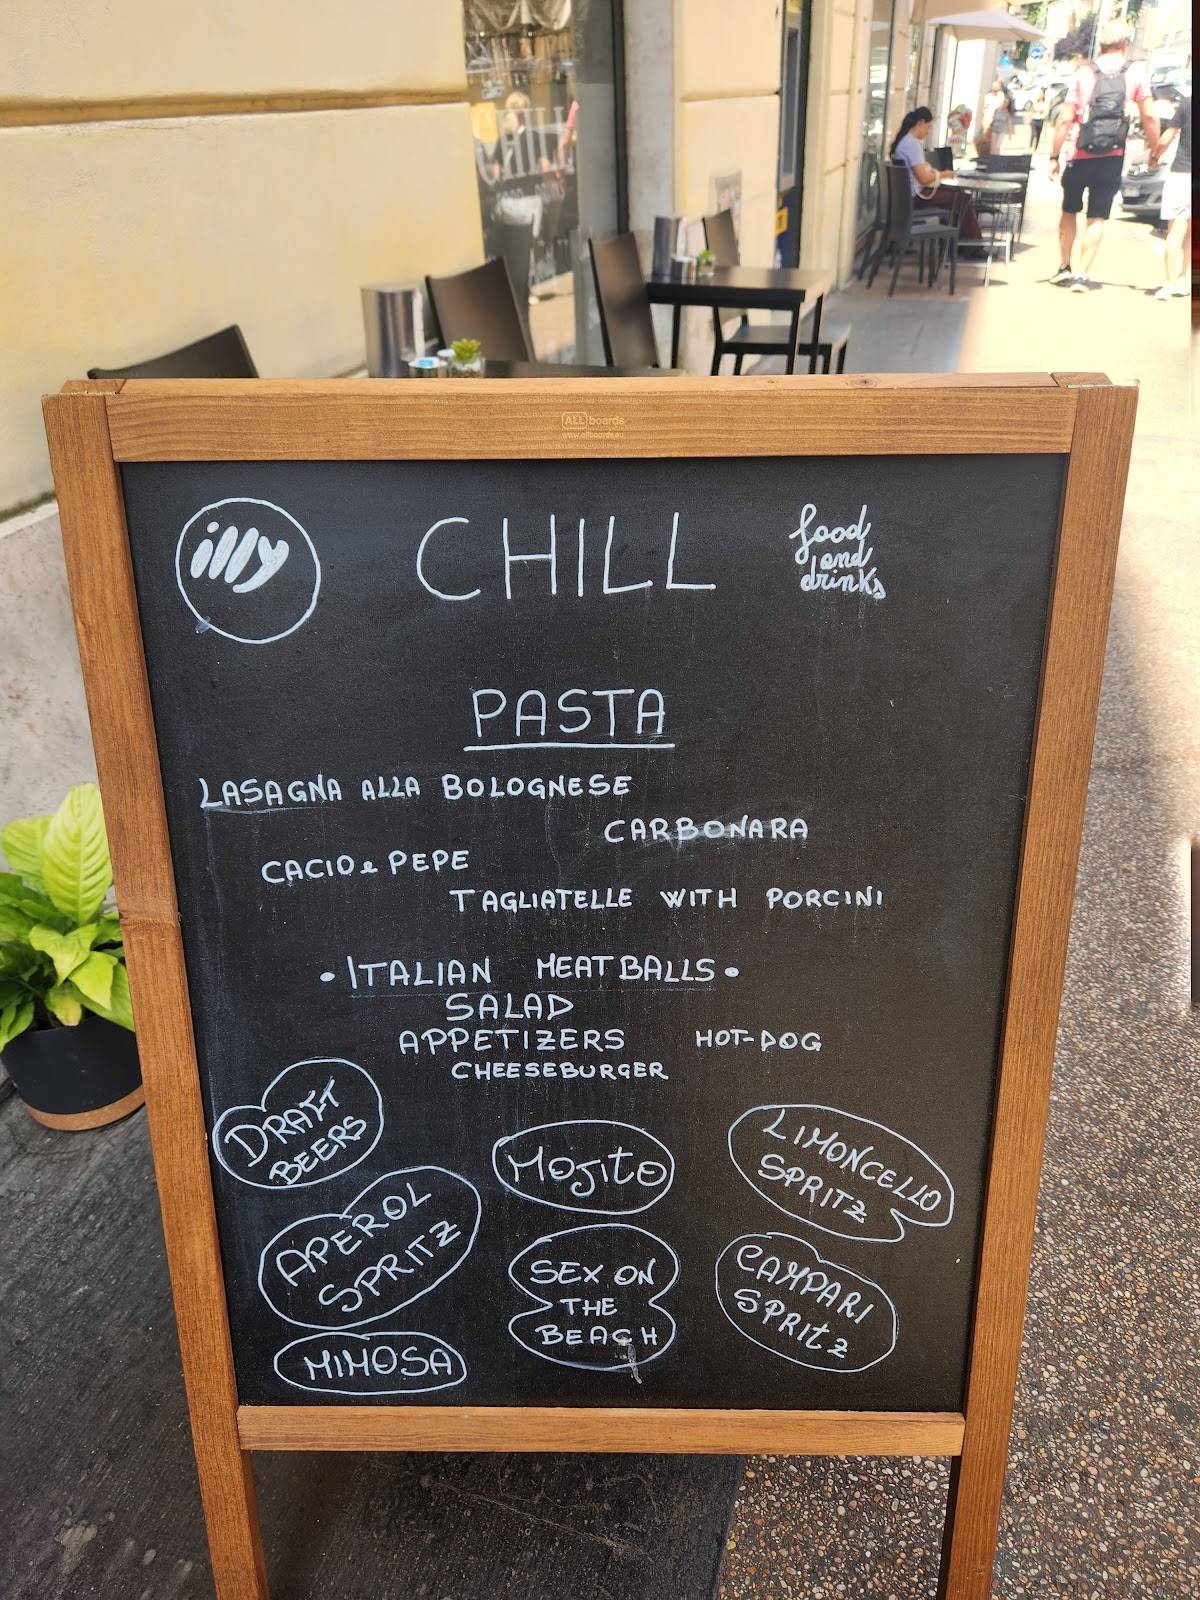 CHILL
ALL boards
www.allboards.eu
illy
CHILL
food
and
drinks
PASTA
LASAGNA ALLA BOLOGNESE
CARBONARA
CACIO e PEPE
TAGLIATELLE WITH PORCINI
• ITALIAN MEATBALLS •
SALAD
APPETIZERS HOT-DOG
CHEESEBURGER
DRAFT
BEERS
MOJITO
LIMONCELLO
SPRITZ
APEROL
SPRITZ
SEX ON
THE
BEACH
CAMPARI
SPRITZ
MIMOSA